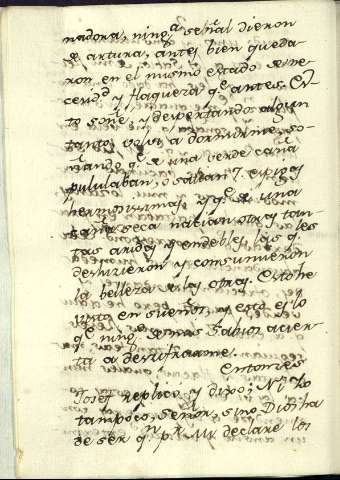 nadora, ning.ª señal dieron
de artura, antes bien queda-
ron en el mismo estado de ma-
cerd.d y flaqueza q.e antes. Es-
to soñé, y despertando algun
tanto, volví a dormirme, so-
ñando q.e de una verde caña
pululaban, o salían 7. espigas
hermosisimas, y q.e de una
caña seca nacian otras tan-
tas aridas y endebles, las q.e
destruieron y consumieron
la belleza a las otras. Esto he
visto en sueños, y esto es lo
q.e ning.o de mis Sabios acier-
ta a descifrarme.
Entonces
Josef replico, y dijo; Ni Yo
tampoco, señor, sino Dios ha
de ser q.n p.r mi declare los